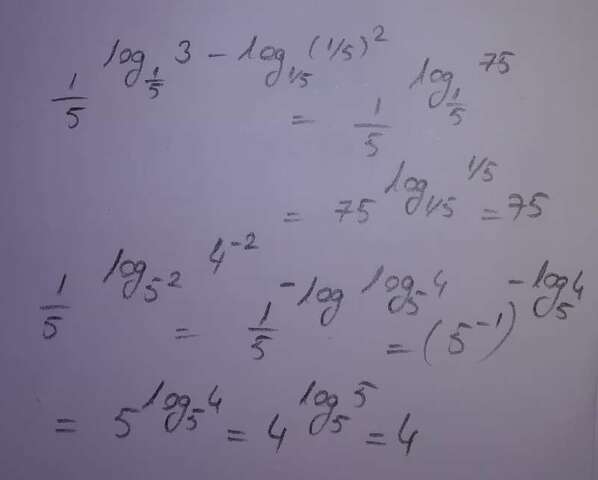 1/5^(log_{1/5} 3 - log_{1/5} (1/5)^2) = 1/5^(log_{1/5} 75)
= 75^(log_{1/5} 1/5) = 75
1/5^(log_{5^2} 4^{-2}) = 1/5^(-log log_5 4) = (5^{-1})^(-log_5 4)
= 5^(log_5 4) = 4^(log_5 5) = 4